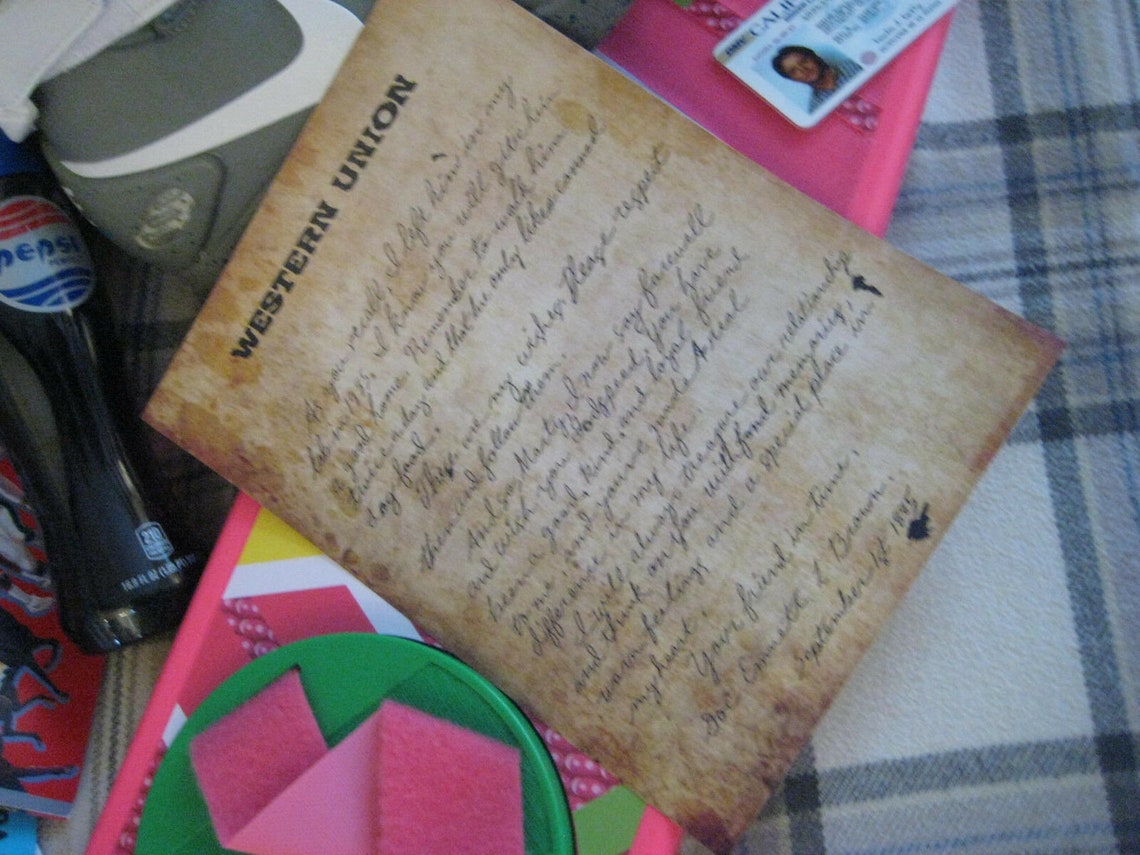 WESTERN UNION
As you recall, I left him in my
lab in 1985. I know you will get him
a good home. Remember to walk him
twice a day and that he only likes canned
dog food.
These are my wishes, please respect
them and follow them.
And so Marty, I now say farewell
and wish you Godspeed. You have
been a good, kind, and loyal friend
to me and you've made A real
difference in my life.
I will always treasure our relationship
and Think on you with fond memories,
warm feelings, and a special place in
my heart.
Your friend in time,
Doc Emmett L Brown.
September 1st 1885
PEPSI
16.9 FL OZ
CALI